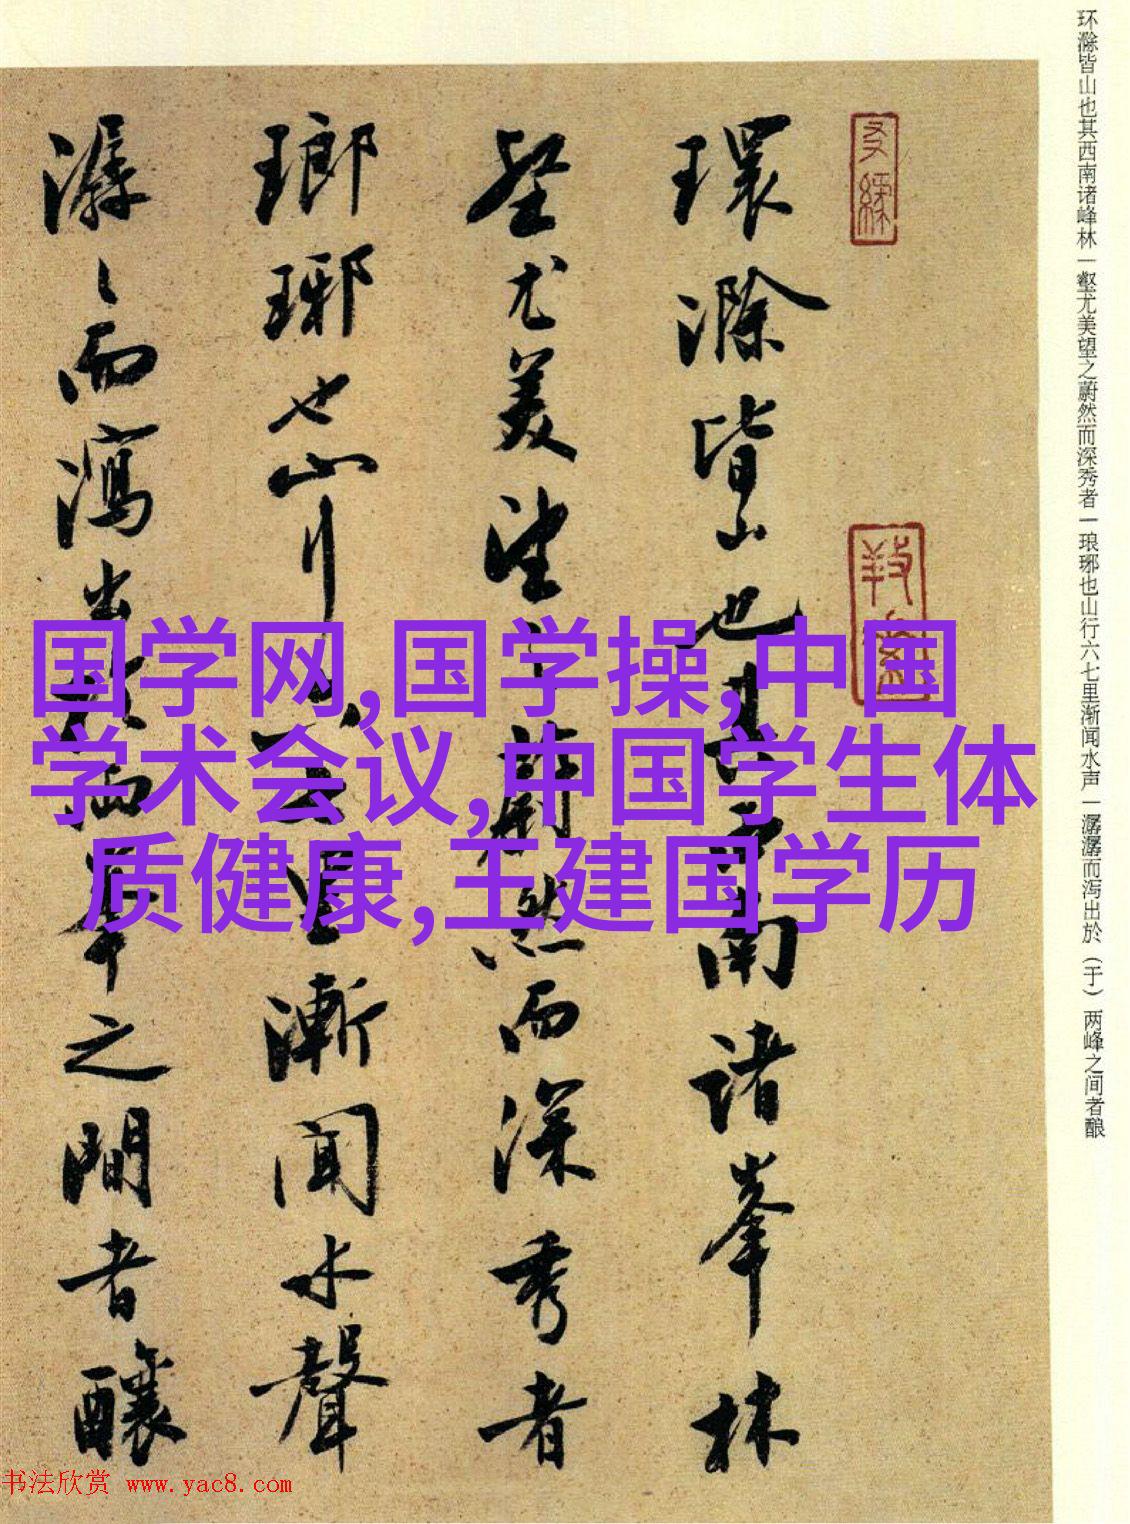 环滁皆山也其西南诸峰林一壑尤美望之蔚然而深秀者一琅琊也山行六七里渐闻水声一潺潺而泻出於（于）两峰之间者酿
環滁皆山也其西南諸峯林
壑尤美望之蔚然而深秀者
瑯琊也山行六七里漸聞水聲
潺々而瀉出於兩峯之間者釀
国学网,国学操,中国
学术会议,中国学生体
质健康,王建国学历
书法欣赏 www.yac8.com